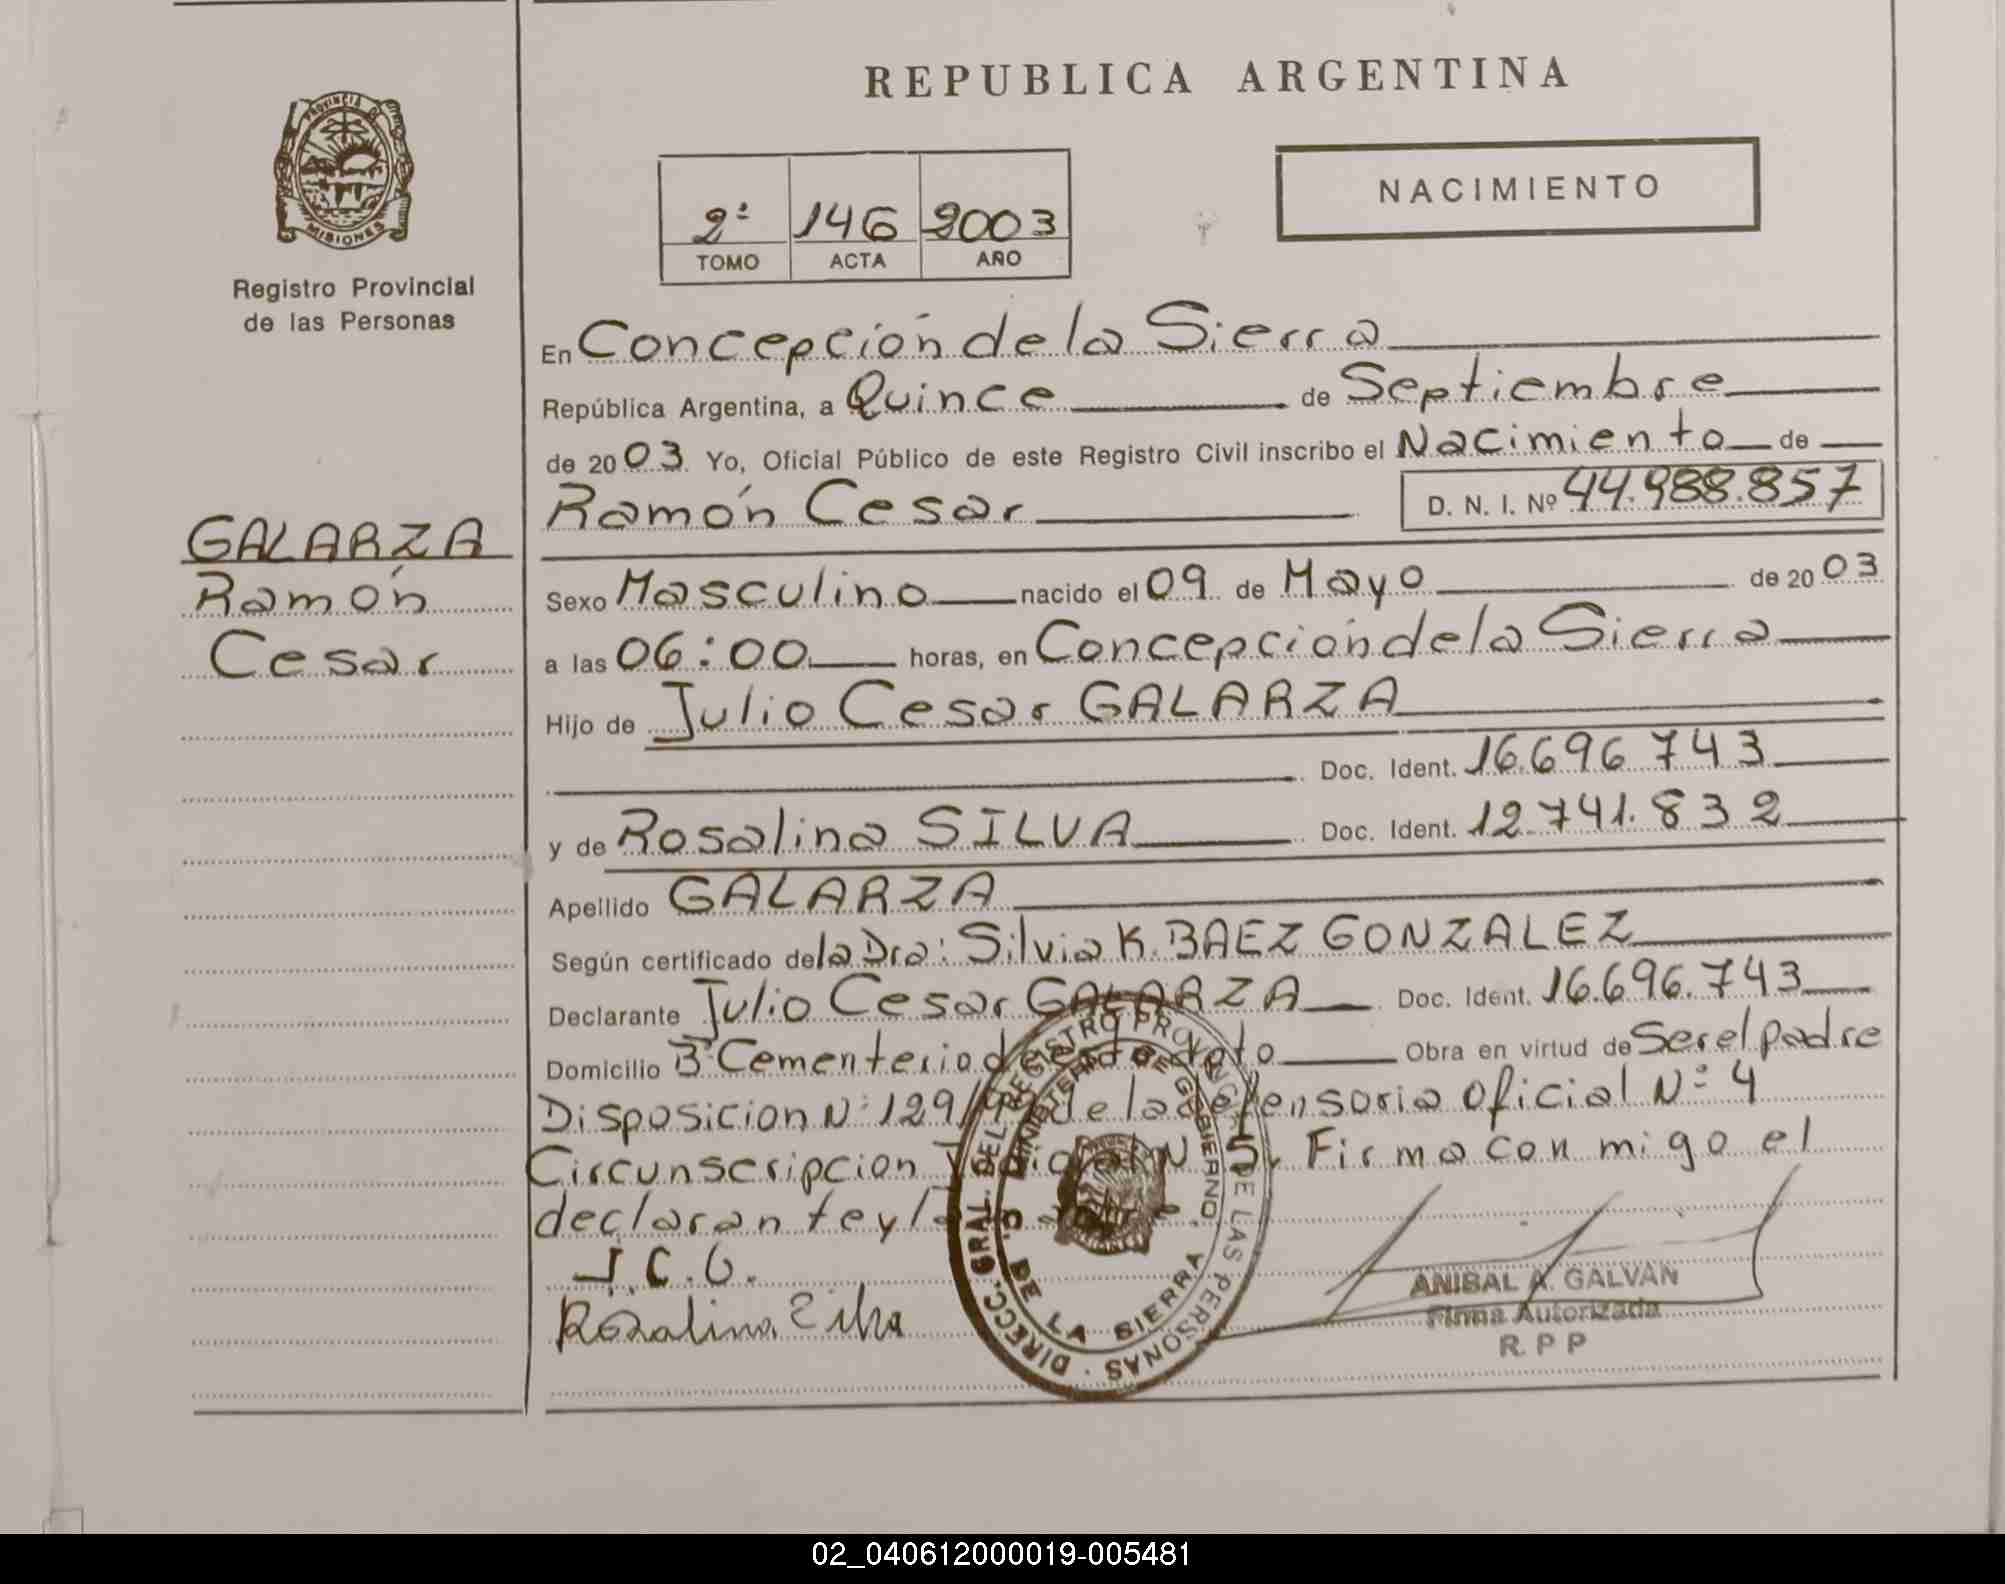 REPUBLICA ARGENTINA
PROVINCIA DE
MISIONES
Registro Provincial
de las Personas
2º 146 2003
TOMO ACTA AÑO
NACIMIENTO
GALARZA
Ramón
Cesar
En Concepción de la Sierra
República Argentina, a Quince de Septiembre
de 2003 Yo, Oficial Público de este Registro Civil inscribo el Nacimiento de
Ramón Cesar D. N. I. Nº 44.988.857
Sexo Masculino nacido el 09 de Mayo de 2003
a las 06:00 horas, en Concepción de la Sierra
Hijo de Julio Cesar GALARZA
Doc. Ident. 16.696 743
y de Rosalina SILVA Doc. Ident. 12.741.832
Apellido GALARZA
Según certificado de la Dra: Silvia K. BAEZ GONZALEZ
Declarante Julio Cesar GALARZA Doc. Ident. 16.696.743
Domicilio Bº Cementerio de esta dpto Obra en virtud de Ser el padre
Disposicion Nº 129/99 de la defensoria Oficial Nº 4
Circunscripcion Judicial N 5. Firma con migo el
declarante y la
J.C.G.
Rosalina Silva
DIRECC. GRAL. DEL REGISTRO PROVINCIAL DE LAS PERSONAS
MINISTERIO DE GOBIERNO
C. DE LA SIERRA
ANIBAL A. GALVAN
Firma Autorizada
R. P P
02_040612000019-005481